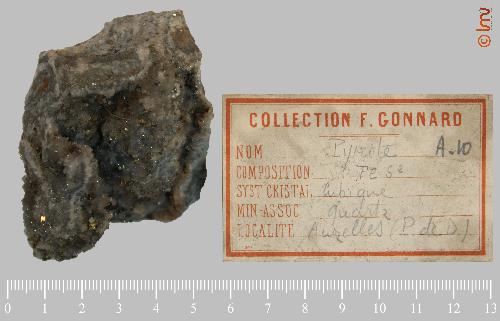 © lmv
COLLECTION F. GONNARD
NOM Pyrite A.10
COMPOSITION Fe S²
SYST CRISTAL. Cubique
MIN-ASSOC quartz
LOCALITÉ Auzelles (P. de D.)
0 1 2 3 4 5 6 7 8 9 10 11 12 13